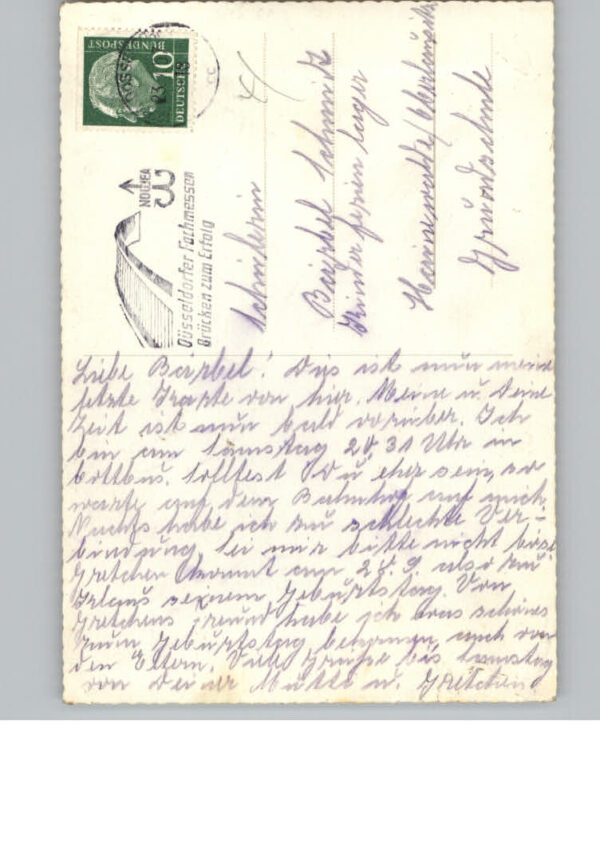 DEUTSCHE
BUNDESPOST
10
NOWEA
Düsseldorfer Fachmessen
Brücken zum Erfolg
Schülerin
Bärbel Schmidt
Kinderferienlager
Hainewalde/Oberlausitz
Grundschule
Liebe Bärbel! Das ist nun meine
letzte Karte von hier. Meine u. Deine
Zeit ist nun bald vorüber. Ich
bin am Samstag 20,31 Uhr in
Cottbus. Solltest Du eher sein, so
warte auf dem Bahnhof auf mich.
Nachts habe ich zu schlechte Ver-
bindung. Sei mir bitte nicht böse
Gretchen kommt am 28.9. also zu
Klaus seinem Geburtstag. Von
Gretchens Freund habe ich was schönes
zum Geburtstag bekommen, auch von
den Eltern. Viele Grüße bis Samstag
von Deiner Mutti u. Gretchen